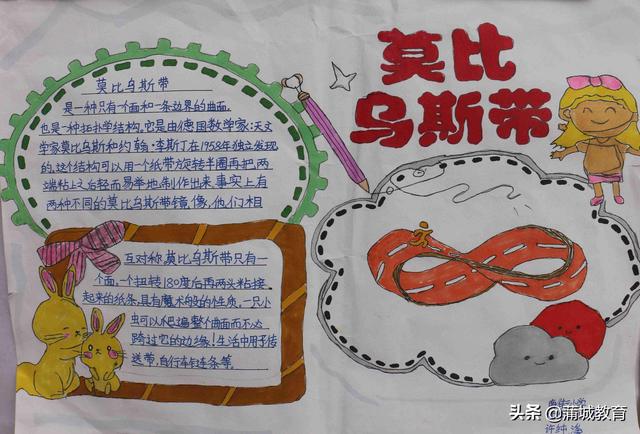 莫比
乌斯带
莫比乌斯带
是一种只有一个面和一条边界的曲面,
也是一种拓扑学结构,它是由德国数学家:天文
学家莫比乌斯和约翰·李斯丁在1958年独立发现
的,这个结构可以用一个纸带旋转半圈再把两
端粘上之后轻而易举地制作出来,事实上有
两种不同的莫比乌斯带镜像,他们相
互对称,莫比乌斯带只有一
个面,一个扭转180度后再两头粘接
起来的纸条,具有魔术般的性质,一只小
虫可以爬遍整个曲面而不必
跨过它的边缘!生活中用于传
送带,自行车链条等,
小学
许纯
头条 @蒲城教育